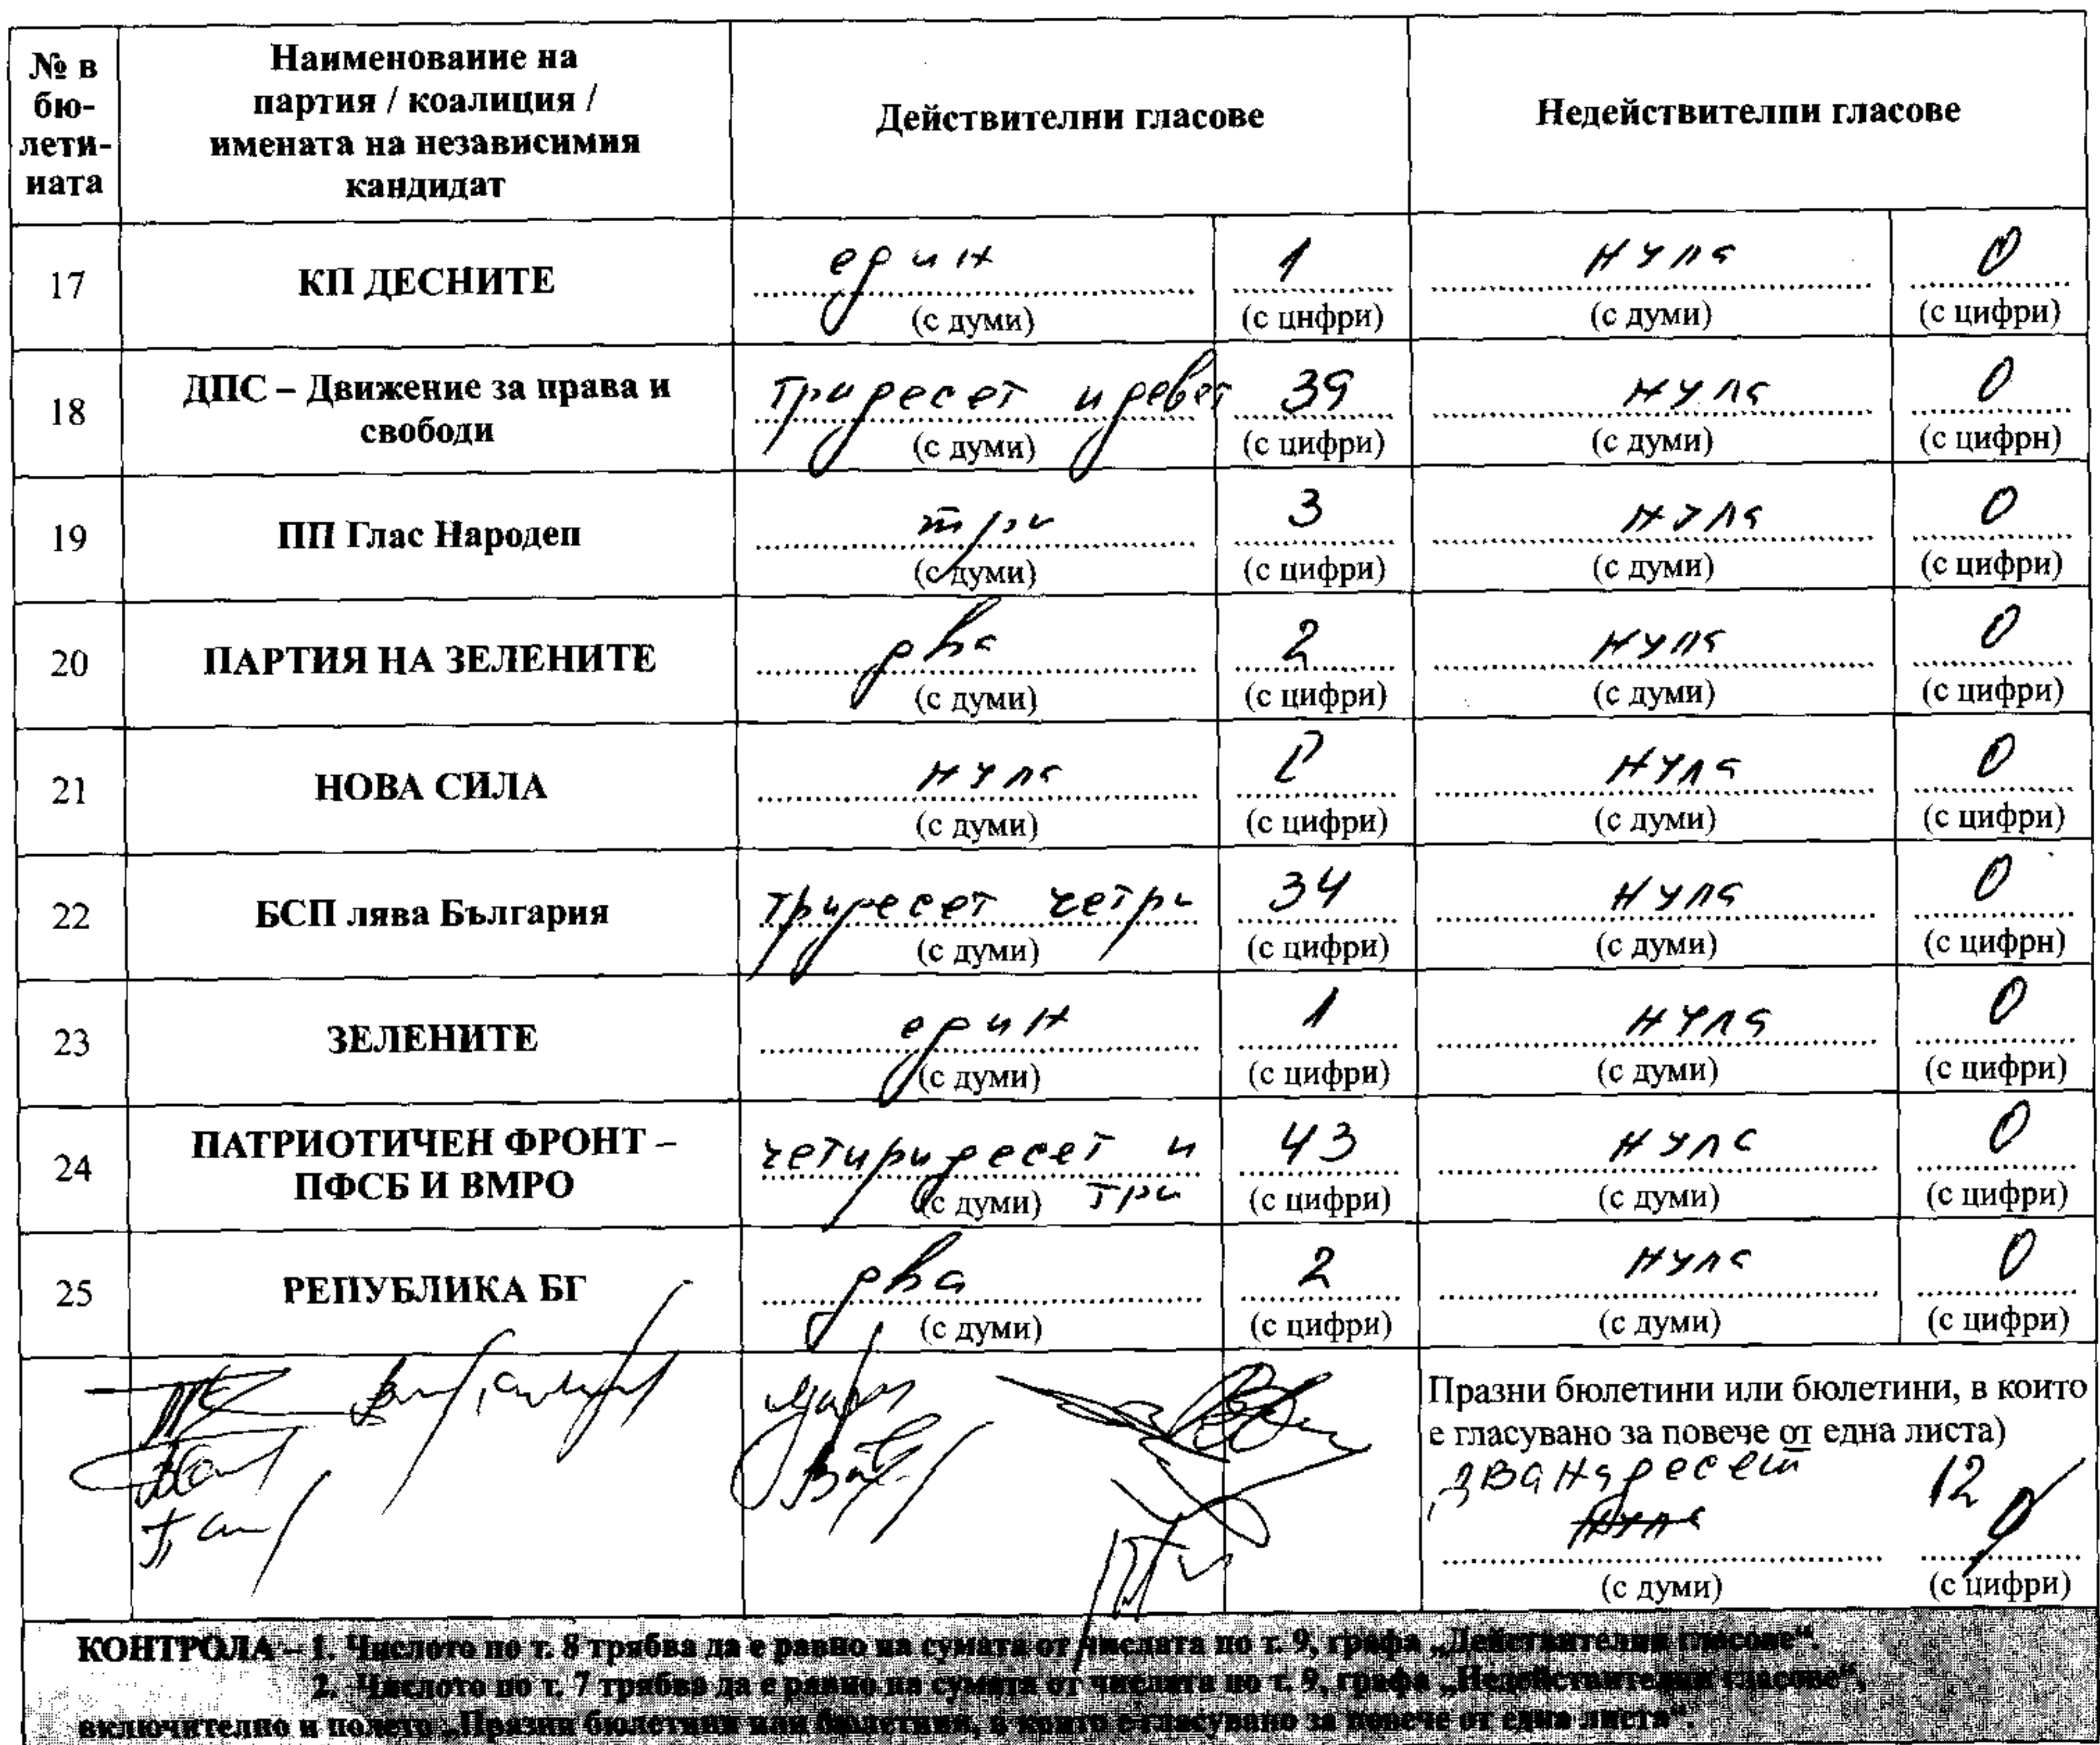 № в бю-лети-ната
Наименование на партия / коалиция / имената на независимия кандидат
Действителни гласове
Недействителни гласове
17 КП ДЕСНИТЕ един 1 нула 0
(с думи) (с цифри) (с думи) (с цифри)
18 ДПС – Движение за права и свободи тридесет и девет 39 нула 0
(с думи) (с цифри) (с думи) (с цифри)
19 ПП Глас Народен три 3 нула 0
(с думи) (с цифри) (с думи) (с цифри)
20 ПАРТИЯ НА ЗЕЛЕНИТЕ два 2 нула 0
(с думи) (с цифри) (с думи) (с цифри)
21 НОВА СИЛА нула 0 нула 0
(с думи) (с цифри) (с думи) (с цифри)
22 БСП лява България тридесет четри 34 нула 0
(с думи) (с цифри) (с думи) (с цифри)
23 ЗЕЛЕНИТЕ един 1 нула 0
(с думи) (с цифри) (с думи) (с цифри)
24 ПАТРИОТИЧЕН ФРОНТ – ПФСБ И ВМРО четиридесет и три 43 нула 0
(с думи) (с цифри) (с думи) (с цифри)
25 РЕПУБЛИКА БГ два 2 нула 0
(с думи) (с цифри) (с думи) (с цифри)
Празни бюлетини или бюлетини, в които
е гласувано за повече от една листа)
дванадесет 12
нула 0
(с думи) (с цифри)
КОНТРОЛА – 1. Числото по т. 8 трябва да е равно на сумата от числата по т. 9, графа „Действителни гласове“.
2. Числото по т. 7 трябва да е равно на сумата от числата по т. 9, графа „Недействителни гласове“,
включително и полето „Празни бюлетини или бюлетини, в които е гласувано за повече от една листа“.